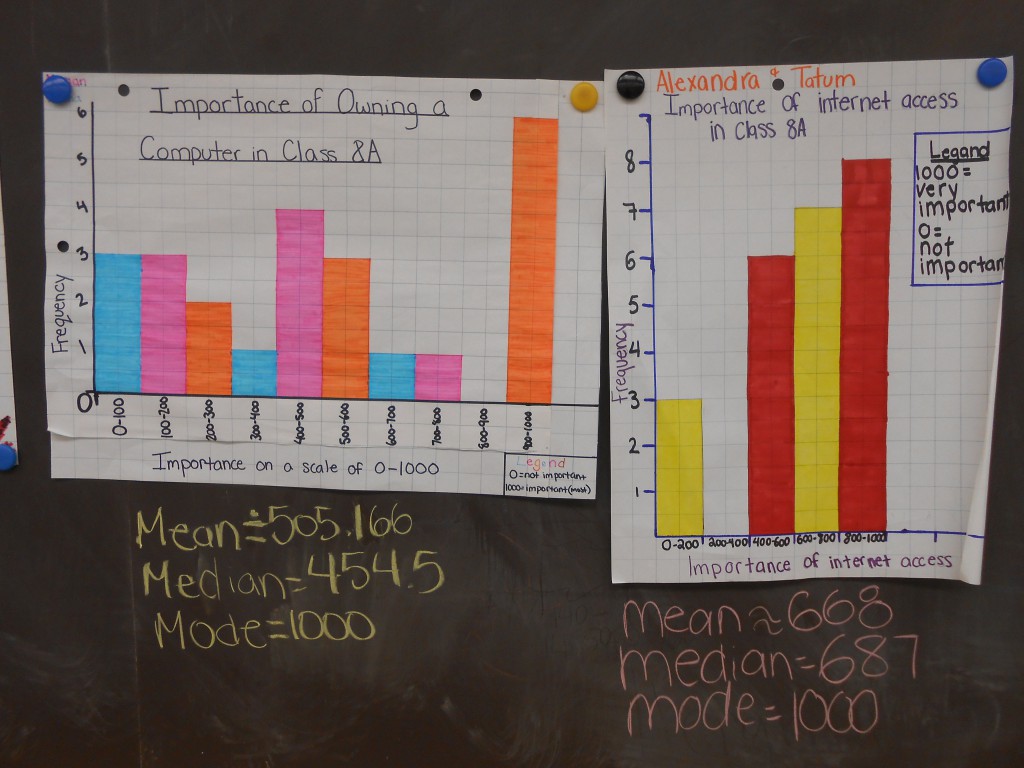 Importance of Owning a
Computer in Class 8A
6
5
4
3
2
1
0
Frequency
0-100
100-200
200-300
300-400
400-500
500-600
600-700
700-800
800-900
900-1000
Importance on a scale of 0-1000
Legend
0=not important
1000=important(most)
Mean≐505.166
Median=454.5
Mode=1000
Alexandra & Tatum
Importance of internet access
in Class 8A
8
7
6
5
4
3
2
1
Frequency
0-200
200-400
400-600
600-800
800-1000
Importance of internet access
Legand
1000=
very
important
0=
not
importan
mean≈668
median=687
mode=1000